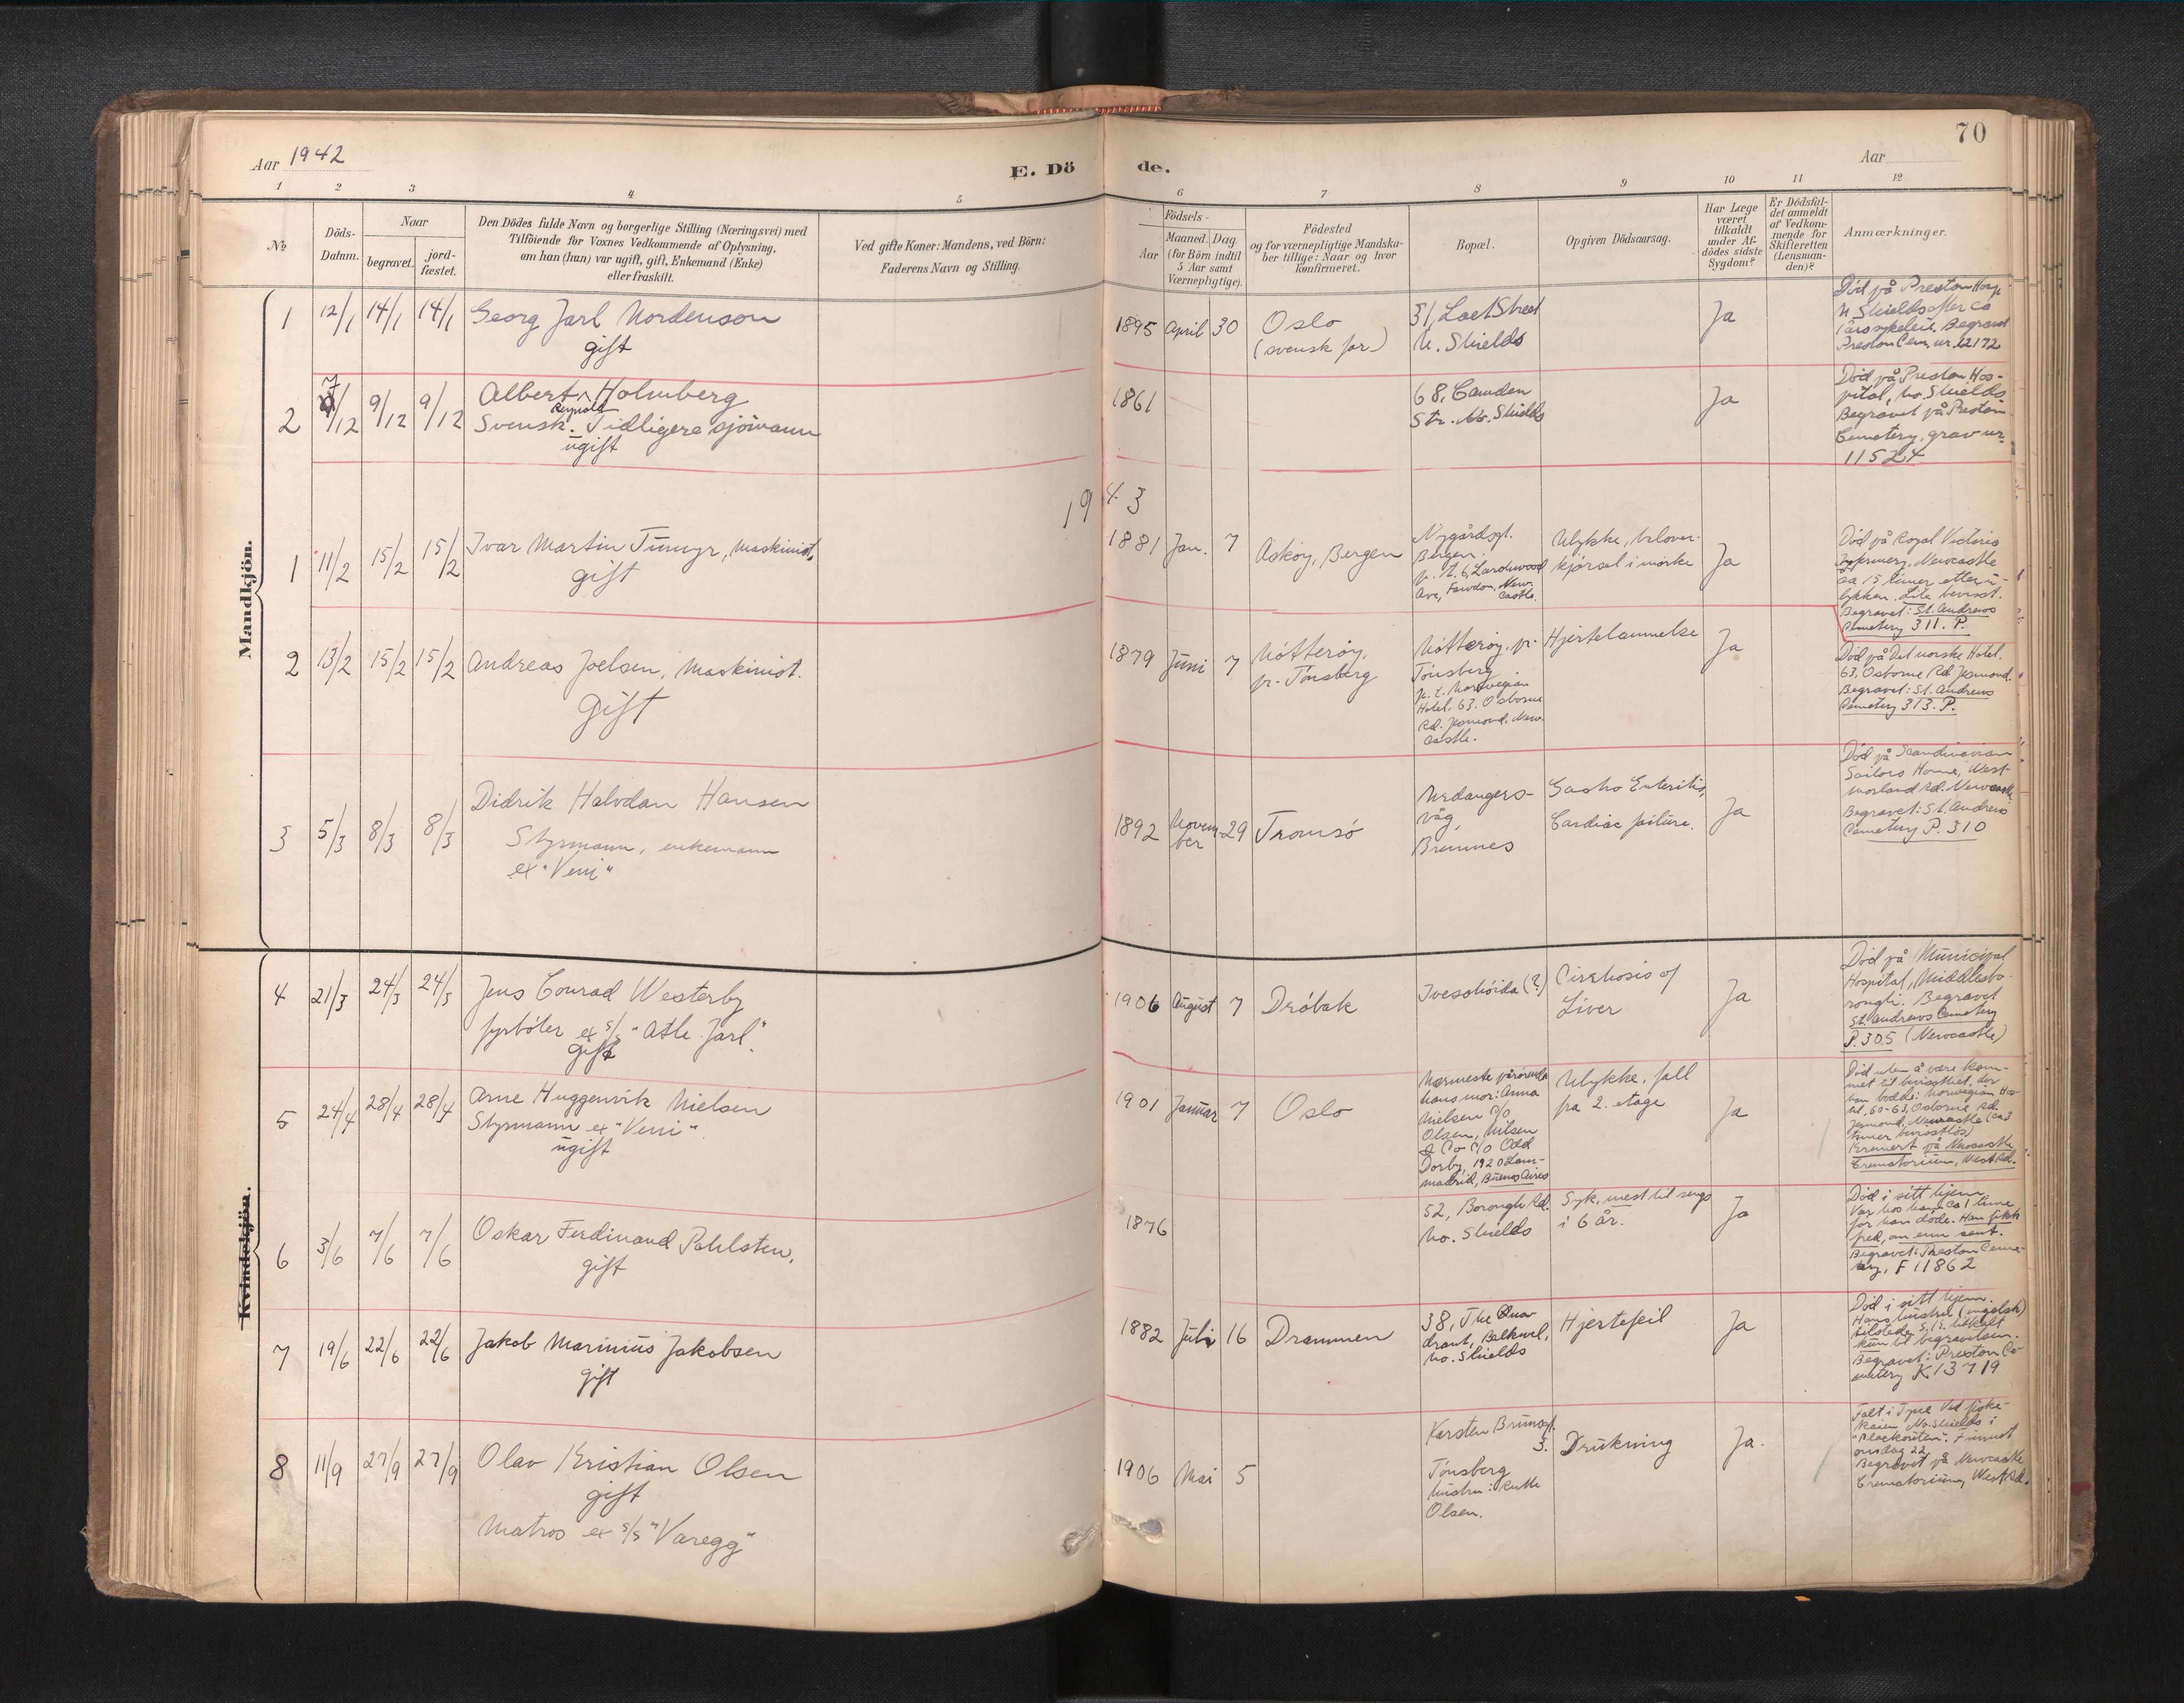 70
Aar 1942
E. Dö de.
Aar
1 2 3 4 5 6 7 8 9 10 11 12
No
Döds-
Datum.
Naar
begravet.
jord-
fæstet.
Den Dödes fulde Navn og borgerlige Stilling (Næringsvei) med
Tilföiende for Voxnes Vedkommende af Oplysning,
om han (hun) var ugift, gift, Enkemand (Enke)
eller fraskilt.
Ved gifte Koner: Mandens, ved Börn:
Faderens Navn og Stilling.
Födsels-
Aar
Maaned. Dag
(for Börn indtil
5 Aar samt
Værnepligtige).
Födested
og for værnepligtige Mandska-
ber tillige: Naar og hvor
konfirmeret.
Bopæl.
Opgiven Dödsaarsag.
Har Læge
været
tilkaldt
under Af-
dödes sidste
Sygdom?
Er Dödsfal-
det anmeldt
af Vedkom-
mende for
Skifteretten
(Lensman-
den)?
Anmærkninger.
Mandkjön.
1 12/1 14/1 14/1 Georg Jarl Nordenson
gift
1895 April 30
Oslo
(svensk far)
31, Street
N. Shields
Ja
Død på Preston Hosp.
N. Shields efter ca
1 års sykeleie. Begravet
Preston Cem. nr. 12172
2 7/12 9/12 9/12 Albert Holmberg
Reynold
Svensk. Tidligere sjömann
ugift
1861
68, Camden
Str. No. Shields
Ja
Död på Preston Hos-
pital, No. Shields
Begravet på Preston
Cemetery, grav nr.
11524
1943
1 11/2 15/2 15/2 Ivar Martin Tümyr, Maskinist.
gift
1881 Jan. 7
Askøy, Bergen
Nygårdsgt.
Bergen.
p. t. 6, Larchwood
Ave, Fawdon, New-
castle.
Ulykke, blover-
kjørsel i mørke
Ja
Död på Royal Victoria
Infermery, Newcastle
ca 15 timer etter u-
lykken. Lite bevisst.
Begravet: St. Andrews
Cemetery 311. P.
2 13/2 15/2 15/2 Andreas Joelsen, Maskinist.
gift
1879 Juni 7
Nötteröy,
pr. Tönsberg
Nötteröy, pr.
Tönsberg
p. t. Norwegian
Hotel, 63. Osborne
Rd. Jesmond. New-
castle.
Hjertelammelse
Ja
Död på Det norske Hotel.
63, Osborne Rd. Jesmond.
Begravet: St. Andrews
Cemetery 313. P.
3 5/3 8/3 8/3 Didrik Halvdan Hansen
Styrmann, enkemann
ex "Veni"
1892 Novem-
ber 29
Tromsø
Urdangers-
våg,
Bremnes
Gastro Enteritis,
Cardiac failure.
Ja
Död på Scandinavian
Sailors Home, West-
morland Rd. Newcastle
Begravet: St. Andrews
Cemetery P. 310
Kvindekjön.
4 21/3 24/3 24/3 Jens Conrad Westerby
fyrböter ex s/s "Atle Jarl".
gift
1906 August 7
Dröbak
(?)
Cirrhosis of
Liver
Ja
Död på Municipal
Hospital, Middlesbo-
rough. Begravet
St. Andrews Cemetery
P. 305 (Newcastle)
5 24/4 28/4 28/4 Arne Huggenvik Nielsen
Styrmann ex "Veni".
ugift
1901 Januar 7
Oslo
Nærmeste pårørende
hans mor: Anna
Nielsen c/o
Olsen, Nilsen
& Co c/o Odd
Dorby, 1920 Lam-
madrid, Buenos Aires
Ulykke, fall
fra 2. etage
Ja
Död uten å være kom-
met til bevissthet, der
han bodde: Norwegian Ho-
tel, 60-63, Osborne Rd.
Jesmond, Newcastle (ca 3
timer bevisstlös)
Kremert på Newcastle
Crematorium, West Rd.
6 3/6 7/6 7/6 Oskar Ferdinand Pahlsten.
gift
1876
52, Borough Rd.
No. Shields
Syk, mest til sengs
i 6 år.
Ja
Död i sitt hjem.
Var hos ham ca 1 time
før han döde. Han fikk
fred, om enn sent.
Begravet: Preston Ceme-
tery, F 11862
7 19/6 22/6 22/6 Jakob Marinius Jakobsen
gift
1882 Juli 16
Drammen
38, The Quad-
drant, Balkwel,
No. Shields
Hjertefeil
Ja
Död i sitt hjem.
Hans hustru (engelsk)
tilstede. tilkalt
kun til begravelsen.
Begravet: Preston Ce-
metery K. 13719
8 11/9 27/9 27/9 Olav Kristian Olsen
gift
Matros ex s/s "Varegg"
1906 Mai 5
Karsten Brunsgt.
3.
Tönsberg
hustru: Ruth
Olsen.
Drukning
Ja.
Falt i Tyne ved fiske-
kaien, No. Shields i
"Blackouten". Funnet
onsdag 22.
Begravet på Newcastle
Crematorium, West Rd.